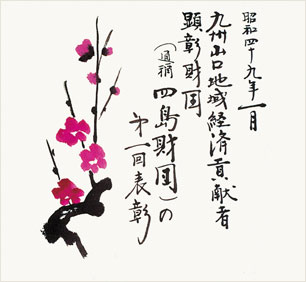 昭和四十九年一月
九州山口地域経済貢献者
顕彰財団
(通称 四島財団)の
第一回表彰